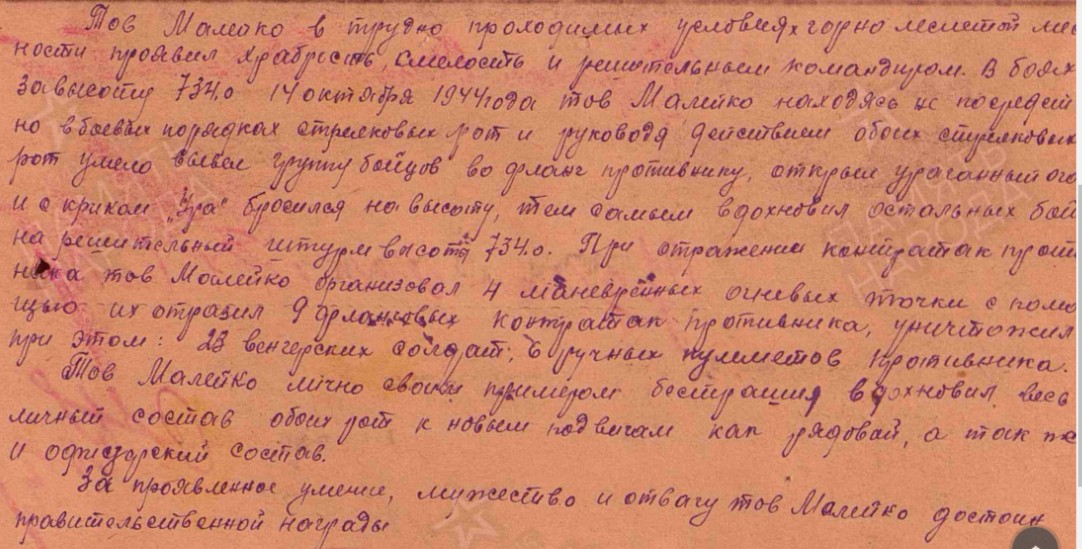 Тов Малейко в трудно проходимых условиях горно лесистой мес
ности проявил храбрость, смелость и решительным командиром. В боях
за высоту 734.0 14 октября 1944 года тов Малейко находясь не посредей
но в боевых порядках стрелковых рот и руководя действием обоих стрелковых
рот умело вывел группу бойцов во фланг противнику, открыл ураганный ого
и с криком „Ура" бросился на высоту, тем самым вдохновил остальных бой
на решительный штурм высоты 734.0. При отражении контратак проти
ника тов Малейко организовал 4 маневренных огневых точки с помо
щью их отразил 9 фланговых контратак противника, уничтожил
при этом: 23 венгерских солдат, 6 ручных пулеметов противника.
Тов Малейко лично своим примером бесстрашия вдохновил весь
личный состав обоих рот к новым подвигам как рядовой, а так же
и офицерский состав.
За проявленное умение, мужество и отвагу тов Малейко достоин
правительственной награды
ПАМЯТЬ
НАРОДА
ПАМЯТЬ
НАРОДА